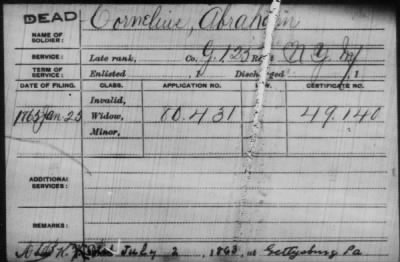 DEAD Cornelius, Abraham
NAME OF SOLDIER:
SERVICE: Late rank, Co. G, 125 Reg't N.Y. Inf
TERM OF SERVICE: Enlisted , Discharged , 1
DATE OF FILING. CLASS. APPLICATION NO. CERTIFICATE NO.
Invalid,
1865 Jan. 25 Widow, 80.431 49.140
Minor,
ADDITIONAL SERVICES:
REMARKS:
July 2 1863, at Gettysburg Pa